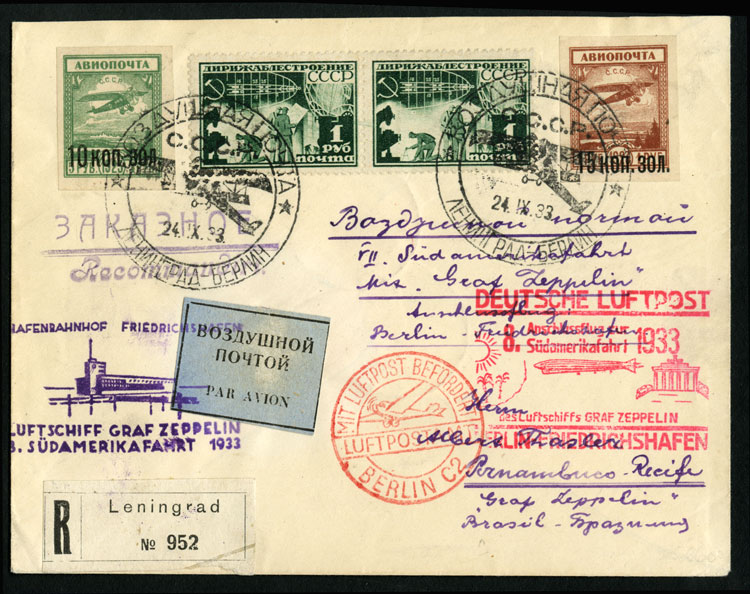 АВИОПОЧТА
С.С.С.Р.
10 КОП. ЗОЛ.
ДИРИЖАБЛЕСТРОЕНИЕ
СССР
1
РУБ
ПОЧТА
ДИРИЖАБЛЕСТРОЕНИЕ
СССР
1
РУБ
ПОЧТА
АВИОПОЧТА
С.С.С.Р.
15 КОП. ЗОЛ.
ВОЗДУШНАЯ ПОЧТА
С.С.С.Р.
24.IX.33
ЛЕНИНГРАД-БЕРЛИН
ВОЗДУШНАЯ ПОЧТА
С.С.С.Р.
24.IX.33
ЛЕНИНГРАД-БЕРЛИН
ЗАКАЗНОЕ
Воздушной почтой
VII. Südamerikafahrt
Mit "Graf Zeppelin"
Anschlussflug:
Berlin - Friedrichshafen
DEUTSCHE LUFTPOST
8. Anschlussflug zur
Südamerikafahrt 1933
des Luftschiffs GRAF ZEPPELIN
BERLIN-FRIEDRICHSHAFEN
HAFENBAHNHOF FRIEDRICHSHAFEN
LUFTSCHIFF GRAF ZEPPELIN
8. SÜDAMERIKAFAHRT 1933
ВОЗДУШНОЙ
ПОЧТОЙ
PAR AVION
MIT LUFTPOST BEFÖRDERT
LUFTPOSTAMT
BERLIN C2
Herrn
Albert
Pernambuco-Recife
"Graf Zeppelin"
Brasil - Бразилия
R
Leningrad
№ 952